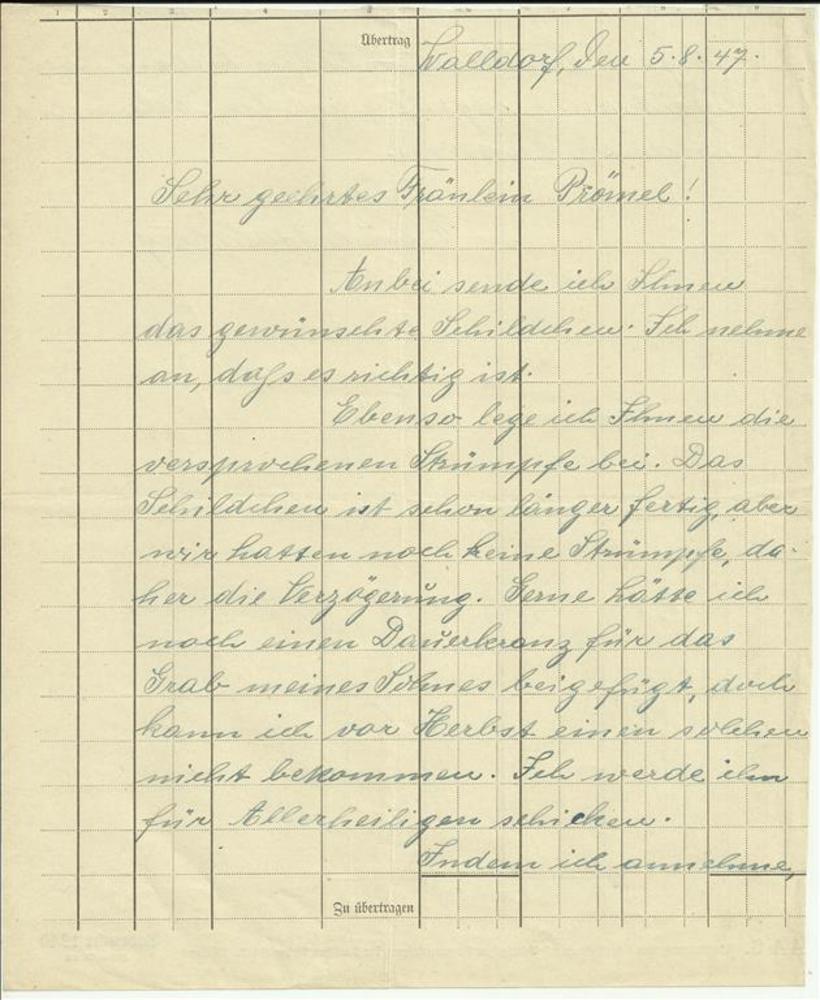 Übertrag
Walldorf, den 5.8.47.
Sehr geehrtes Fräulein Prömel!
Anbei sende ich Ihnen
das gewünschte Schildchen. Ich nehme
an, daſs es richtig ist.
Ebenso lege ich Ihnen die
versprochenen Strümpfe bei. Das
Schildchen ist schon länger fertig, aber
wir hatten noch keine Strümpfe, da-
her die Verzögerung. Gerne hätte ich
noch einen Dauerkranz für das
Grab meines Sohnes beigefügt, doch
kann ich vor Herbst einen solchen
nicht bekommen. Ich werde ihn
für Allerheiligen schicken.
Indem ich annehme,
Zu übertragen